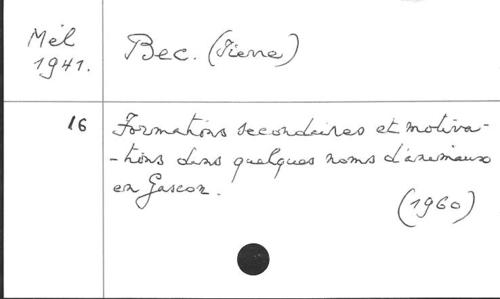 Mél
1941.
Bec. (Pierre)
16
Formations secondaires et motiva-
-tions dans quelques noms d'animaux
en Gascon.
(1960)